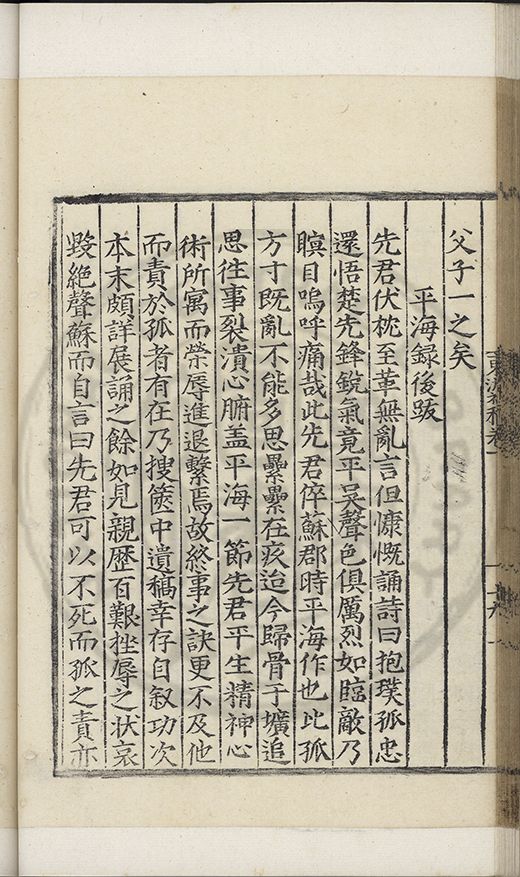 父子一之矣
平海録後跋
先君伏枕至革無亂言但慷慨誦詩曰抱璞孤忠
還悟楚先鋒銳氣竟平吴聲色俱厲烈如臨敵乃
瞑目嗚呼痛哉此先君倅蘇郡時平海作也比孤
方寸既亂不能多思纍纍在疚迨今歸骨于壙追
思往事裂潰心腑盖平海一節先君平生精神心
術所寓而榮辱進退繫焉故終事之訣更不及他
而責於孤者有在乃搜篋中遺稿幸存自叙功次
本末頗詳展誦之餘如見親歷百艱挫辱之狀哀
毀絕聲蘇而自言曰先君可以不死而孤之責亦